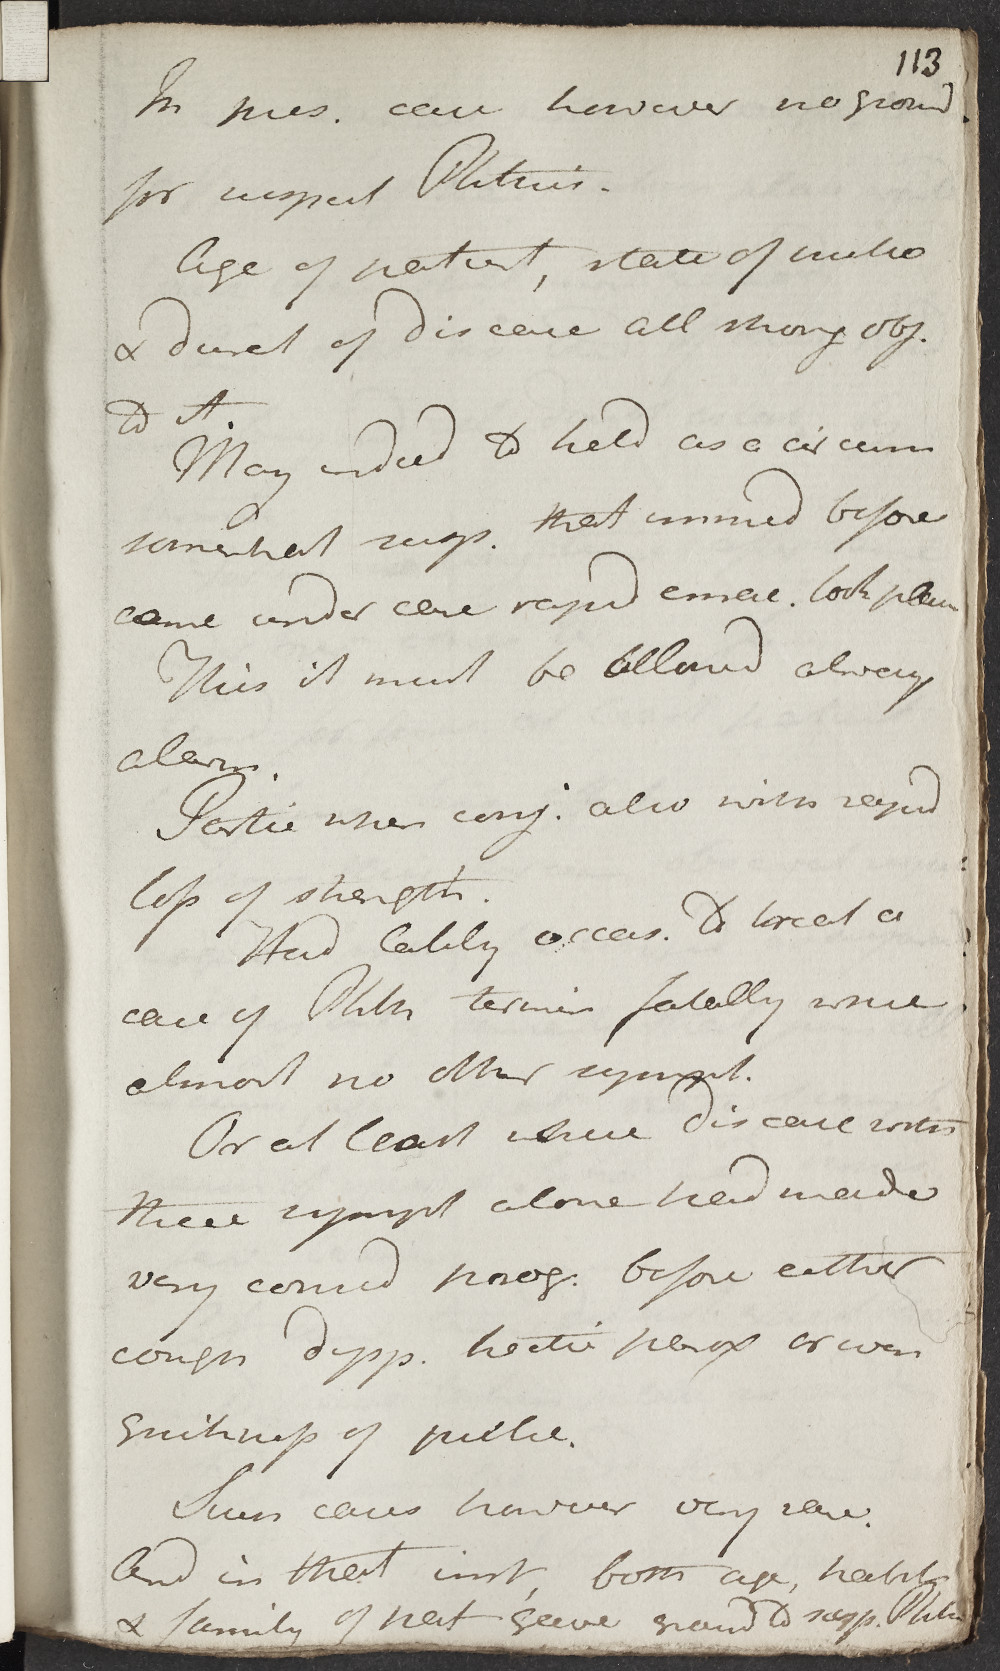 113
In pres. case however no ground
for suspect Phthisis.
Age of patient, state of pulse
& durat of disease all strong obj.
to it.
May indeed to held as a circum
somewhat susp. that immed before
came under care rapid emac. took place
This it must be allowed always
alarm.
Partic when conj. also with rapid
loss of strength.
Had lately occas. to treat a
case of Phth termin fatally where
almost no other sympt.
Or at least where disease with
these sympt alone had made
very consid prog. before either
cough dysp. hectic parox or even
quickness of pulse.
Such cases however very rare.
And in that inst, both age, habit
& family of pat gave ground to susp. Phth